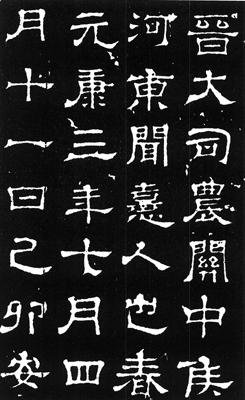 晉大司農關中侯
河東聞憙人也春
元康三年七月四
月十一日己卯安